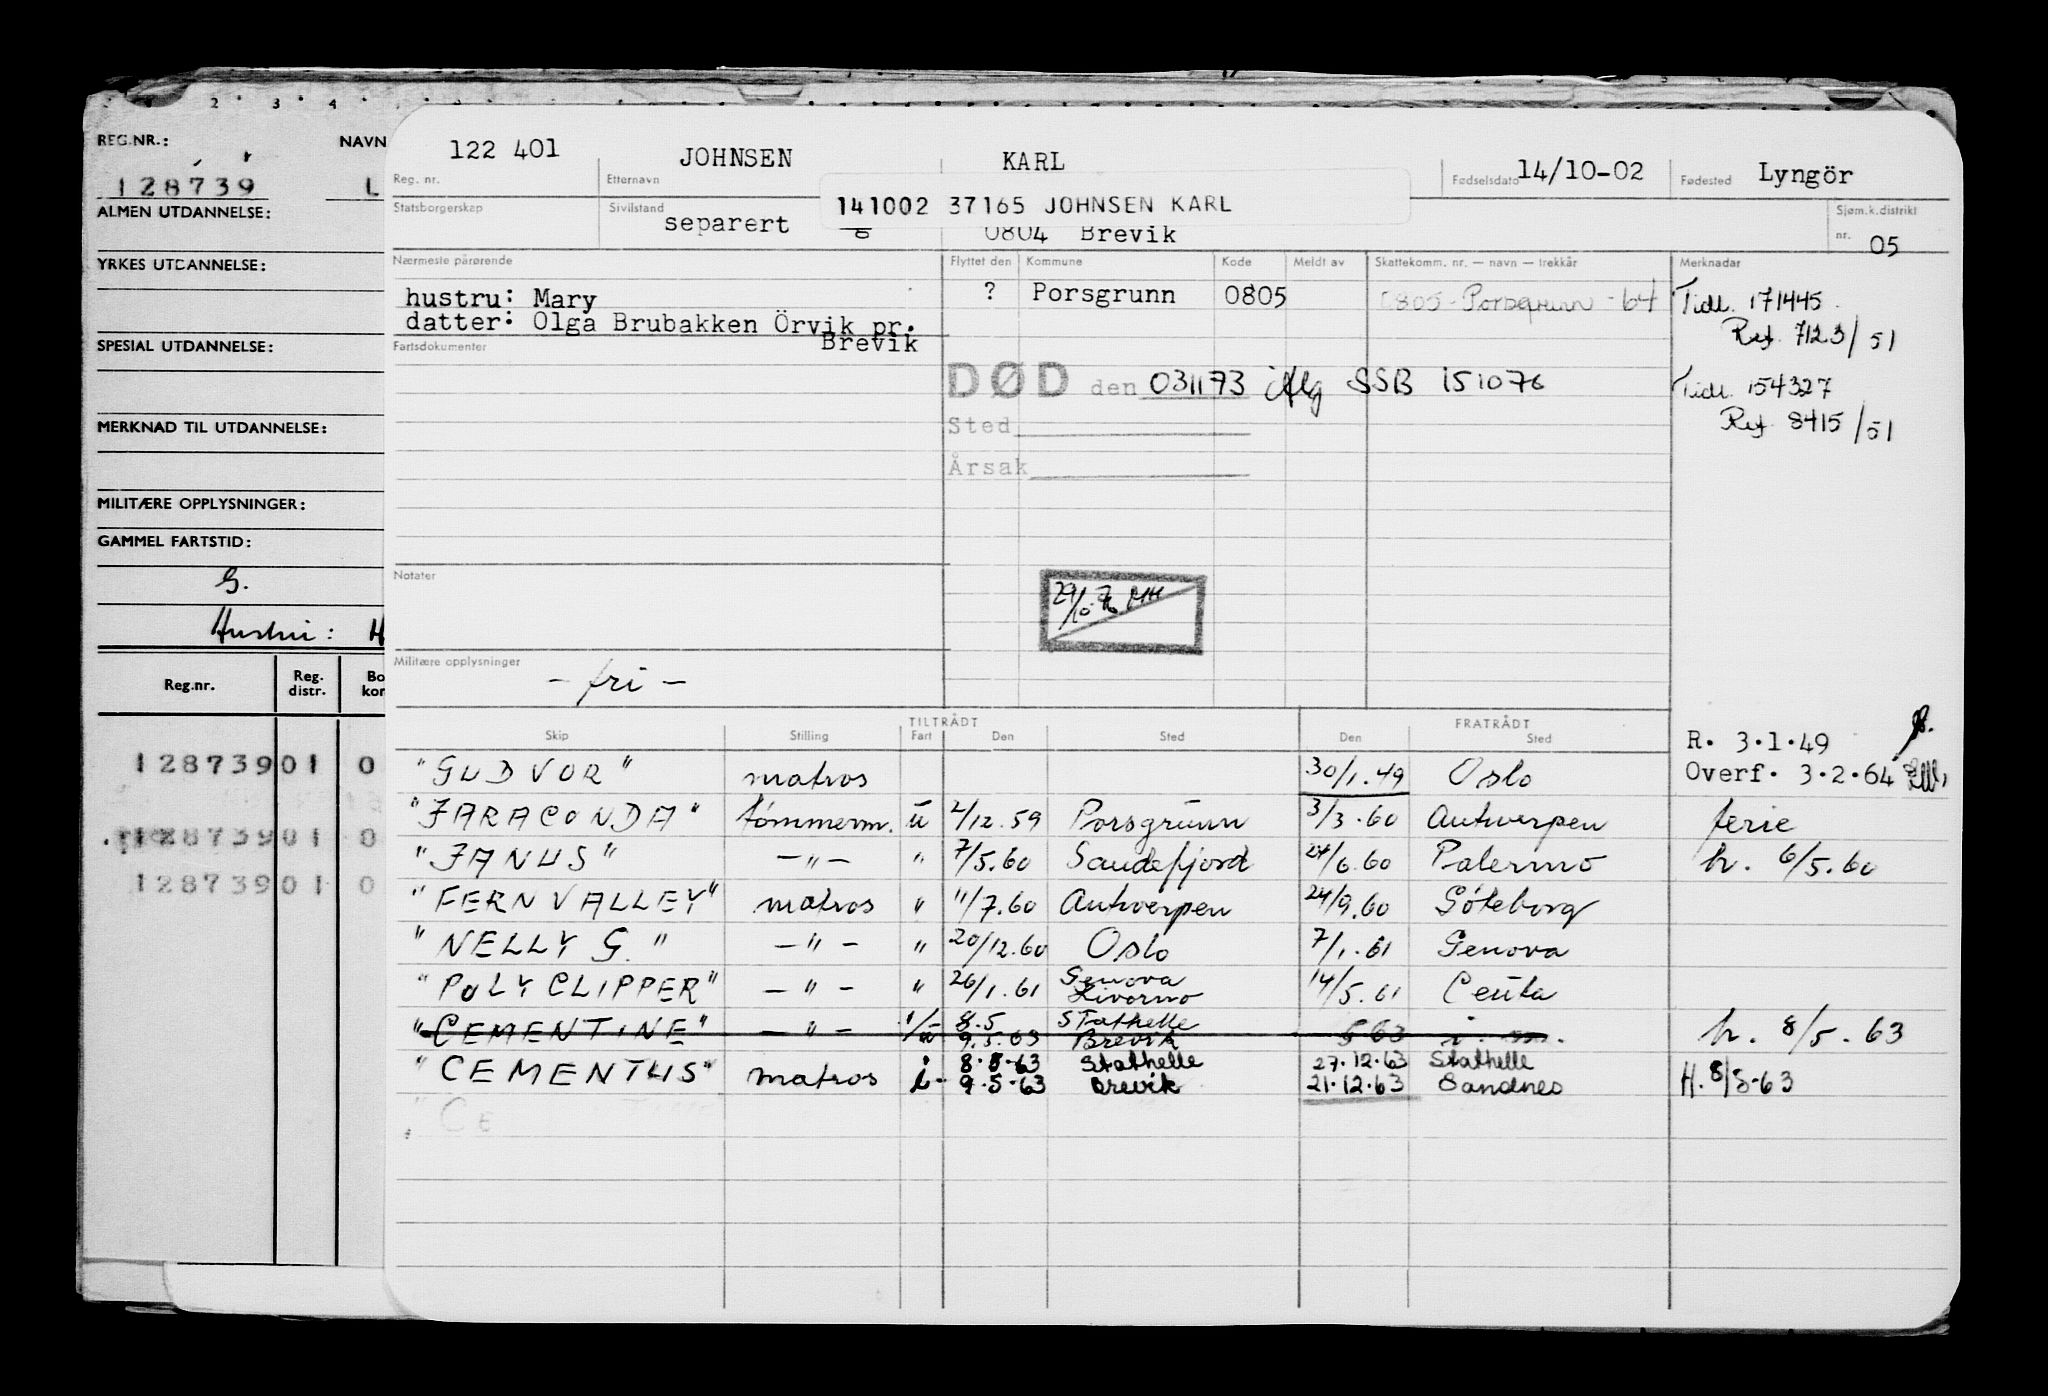 REG.NR.: NAVN
128739 L
ALMEN UTDANNELSE:
YRKES UTDANNELSE:
SPESIAL UTDANNELSE:
MERKNAD TIL UTDANNELSE:
MILITÆRE OPPLYSNINGER:
GAMMEL FARTSTID:
G.
Hustru: H
Reg.nr. Reg. distr. Bo kor
128739 01 0
128739 01 0
128739 01 0
122 401 JOHNSEN KARL 14/10-02 Lyngör
Reg. nr. Etternavn Fødselsdato Fødested
141002 37165 JOHNSEN KARL
Statsborgerskap Sivilstand Sjøm.k.distrikt
separert 0804 Brevik nr. 05
Nærmeste pårørende Flyttet den Kommune Kode Meldt av Skattekomm. nr. — navn — trekkår Merknader
hustru: Mary ? Porsgrunn 0805 0805-Porsgrunn-64 Tidl. 171445
datter: Olga Brubakken Örvik pr. Ref. 7123/51
Brevik
Fartsdokumenter
DØD den 031173 SSB 151076 Tidl. 154327
Sted Ref. 8415/51
Årsak
Notater
29/10.76 MH
Militære opplysninger
- fri -
TILTRÅDT FRATRÅDT
Skip Stilling Fart Den Sted Den Sted
R. 3.1.49
"GUDVOR" matros 30/1.49 Oslo Overf. 3.2.64
"JARACONDA" tømmerm. ū 2/12.59 Porsgrunn 3/3.60 Antwerpen ferie
"JANUS" -"- " 7/5.60 Sandefjord 24/6.60 Palermo h. 6/5.60
"FERNVALLEY" matros " 11/7.60 Antwerpen 24/9.60 Göteborg
"NELLY G." -"- " 20/12.60 Oslo 7/1.61 Genova
"POLYCLIPPER" -"- " 26/1.61 Genova Livorno 14/5.61 Ceuta
"CEMENTINE" -"- i/ū 8.5 Stathelle
9.5.63 Brevik 563 i. m. h. 8/5.63
"CEMENTUS" matros i 8.5.63 Stathelle 27.12.63 Stathelle
i- 9.5.63 Brevik 21.12.63 Sandnes H. 8/5-63
"Ce